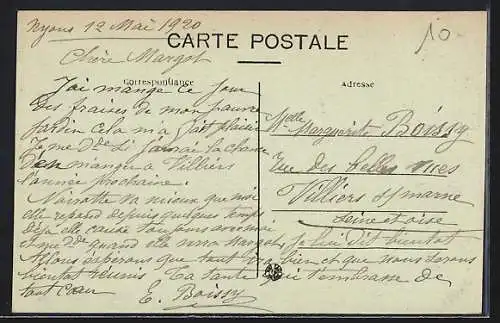 Nyons 12 Mai 1920
10
CARTE POSTALE
Chère Margot
Correspondance
Adresse
J'ai mangé ce jour
des fraises de mon pauvre
jardin cela m'a fait plaisir
Je me d^de si j'aurai la chance
d'en manger à Villiers
l'année prochaine.
Noirotte va mieux que moi
elle reprend depuis quelques temps
déjà elle cause toujours
quand elle verra Margot, je lui dit bientôt
Allons espérons que tout ira bien et que nous serons
bientôt réunis Ta tante qui t'embrasse de
tout cœur
E. Boissy
Melle
Marguerite Boissy
rue des belles vues
Villiers s/ marne
Seine et oise